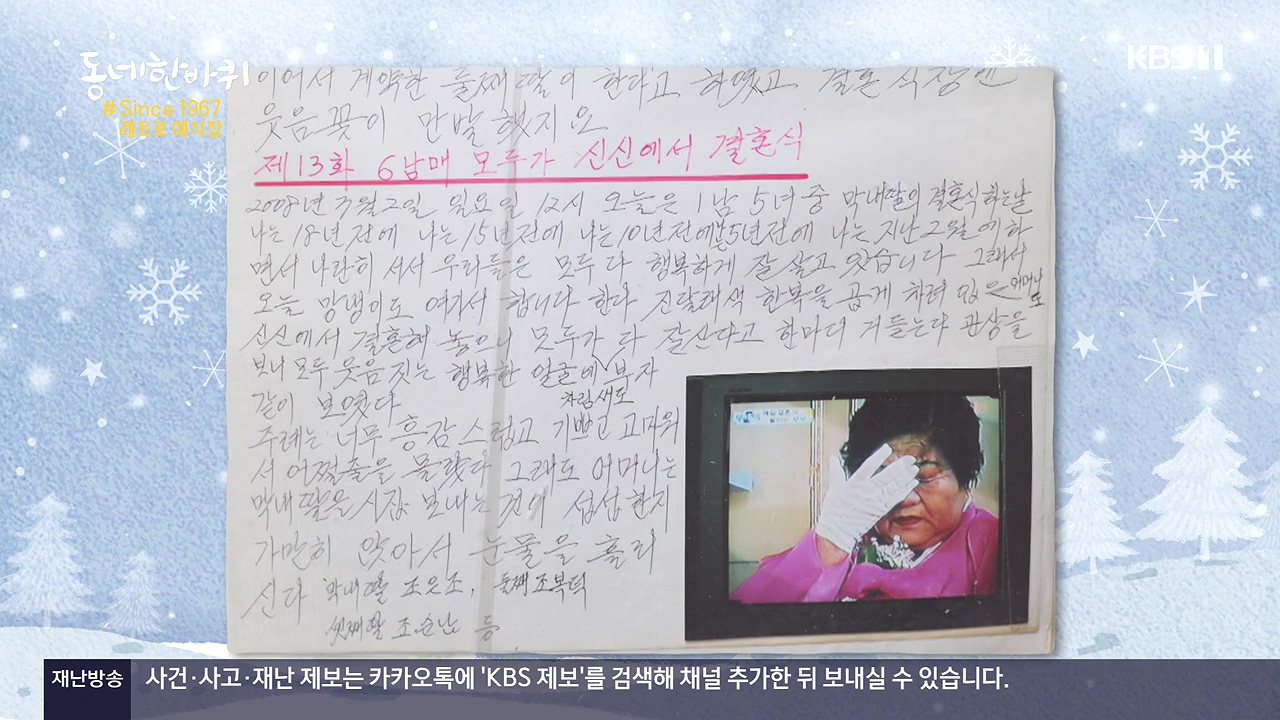 동네한바퀴
#Since 1967
레트로 예식장
KBS 1
이어서 계약한 둘째 딸이 한다고 하였고 결혼식장엔
웃음꽃이 만발했지요
제13화 6남매 모두가 신신에서 결혼식
2008년 3월2일 일요일 12시 오늘은 1남 5녀중 막내딸의 결혼식하는날
나는 18년전에 나는 15년전에 나는 10년전에 5년전에 나는 지난 2월에 하
면서 나란히 서서 우리들은 모두 다 행복하게 잘 살고 있습니다 그래서
오늘 망냉이도 여기서 합니다 한다 진달래색 한복을 곱게 차려 입은 어머니도
신신에서 결혼해 놓으니 못두가 다 잘산다고 한마디 거들는다 관상을
보니 모두 웃음짓는 행복한 얼굴에 부자
차림새로
같이 보였다
주례는 너무 흥감스럽고 기쁘고 고마워
서 어쩔줄을 몰랐다 그래도 어머니는
막내딸을 시집 보내는 것에 섭섭한지
가만히 앉아서 눈물을 흘리
신다 막내딸 조은조, 둘째 조복덕
셋째딸 조순남 등
재난방송
사건·사고·재난 제보는 카카오톡에 'KBS 제보'를 검색해 채널 추가한 뒤 보내실 수 있습니다.